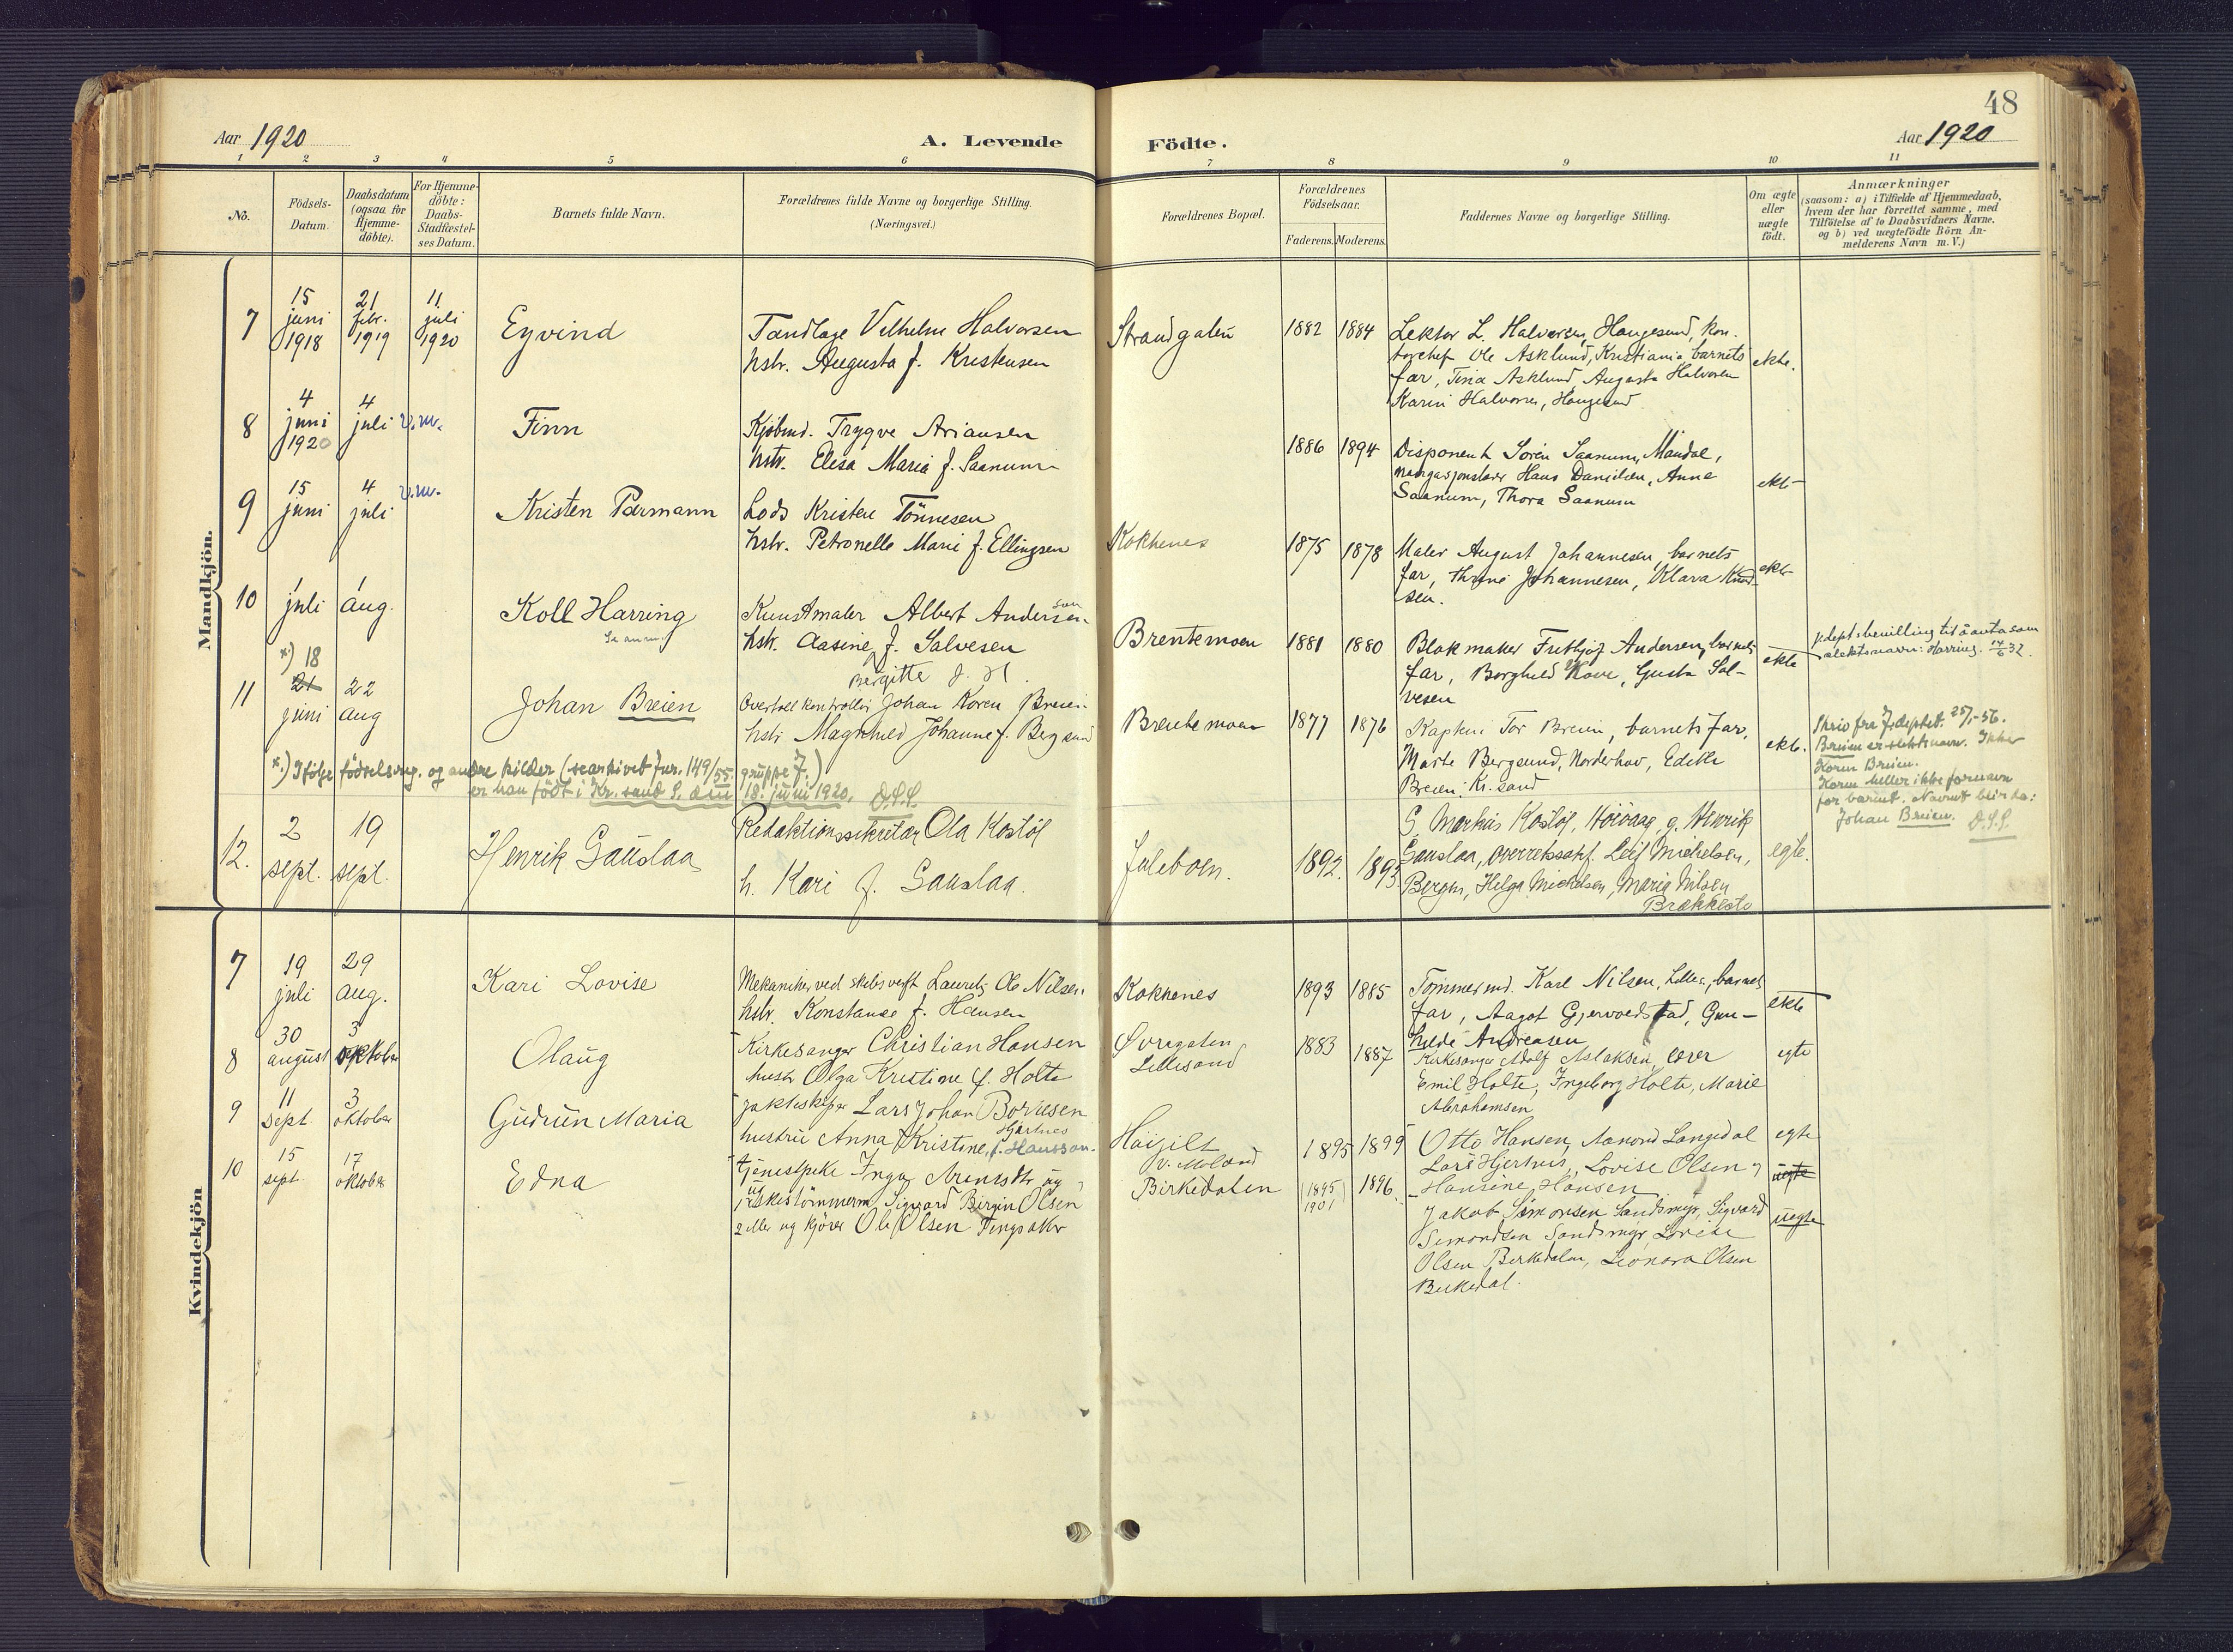 48
Aar 1920
A. Levende
Födte.
Aar 1920
1 2 3 4 5 6 7 8 9 10 11
No.
Födsels-
Datum.
Daabsdatum
(ogsaa for
Hjemme-
döbte).
For Hjemme-
döbte:
Daabs-
Stadfæstel-
ses Datum.
Barnets fulde Navn.
Forældrenes fulde Navne og borgerlige Stilling.
(Næringsvei.)
Forældrenes Bopæl.
Forældrenes
Födselsaar.
Faderens. Moderens.
Faddernes Navne og borgerlige Stilling.
Om ægte
eller
uægte
födt.
Anmærkninger
(saasom: a) i Tilfælde af Hjemmedaab,
hvem der har forrettet samme, med
Tilföielse af to Daabsvidners Navne.
og b) ved uægtefödte Börn An-
melderens Navn m. V.)
Mandkjön.
7
15
juni
1918
21
febr.
1919
11
juli
1920
Eyvind
Tandlæge Vilhelm Halvorsen
hstr. Augusta f. Kristensen
Strandgaten
1882 1884
Lektor L. Halvorsen, Haugesund, kon-
torchef Ole Asklund, Kristiania, barnets
far, Tina Asklund, Augusta Halvorsen
Karin Halvorsen, Haugesund
ekte.
8
4
juni
1920
4
juli
v.m.
Finn
Kjöbmd. Trygve Ariansen
hstr. Elisa Maria f. Saanum
1886 1894
Disponent Sören Saanum, Mandal,
Hans Danielsen, Anna
Saanum, Thora Saanum
ekte
9
15
juni
4
juli
v.m.
Kristen Parmann
Lods Kristen Tönnesen
hstr. Petronelle Marie f. Ellingsen
Kokkenes
1875 1878
Maler August Johannesen, barnets
far, Johannesen, Klara Knud-
sen.
ekte
10
1
juli
1
aug.
Koll Harring
Kunstmaler Albert Andersen
hstr. Aasine f. Salvesen
Bergitte
Brentemoen
1881 1880
Blokmaker Frithjof Andersen, barnets
far, Borghild Hove, Gusta Sal-
vesen
ekte
J.depts bevilling til å anta som
slektsnavn: Harring. 14/6 32.
11
x) 18
21
juni
22
aug
Johan Breien
Overtoll kontrollör Johan Koren Breien
hstr Maghild Johanne f. Bergsund
Brentemoen
1877 1876
Kaptein Tor Breien, barnets far,
Marte Bergsund, Norderhov, Edith
Breien, Kr.sand
ekte.
Skriv fra J.deptet. 25/1-56.
Breien er slektsnavn. Ikke
Koren Breien.
Koren heller ikke fornavn
for barnet. Navnet blir da:
Johan Breien. D.S.S.
x) Ifölge födselsreg. og andre kilder (se arkivet Jnr. 149/55. gruppe 7.)
er han födt i Kr. sand S. den 18. juni 1920. D.S.S.
12.
2
sept.
19
sept.
Henrik Gauslaa
Redaktionssekretær Ola Kostöl
h. Kari f. Gauslaa.
Juleboen.
1892. 1893
G. Markus Kostöl, Höivaag, g. Henrik
Gauslaa, Overretssakf. Leif Michelsen,
Bergen, Helga Michelsen, Maria Nilsen
Brækkestö
egte.
Kvindekjön
7
19
juli
29
aug.
Kari Lovise
Mekaniker ved skibsverft Laurits Ole Nilsen
hstr. Konstanse f. Hansen
Kokkenes
1893 1885
Tömmermd. Karl Nilsen, Lilles., barnets
far, Aagot Gjervoldstad, Gun-
hilde Andreasen
ekte
8
30
august
3
oktober
Olaug
Kirkesanger Christian Hansen
hustr Olga Kristine f. Holte
Övregaten
Lillesand
1883 1887
Kirkesanger Adolf Aslaksen, lærer
Emil Holte, Ingeborg Holte, Marie
Abrahamsen
egte
9
11
sept
3
oktober
Gudrun Maria
Jakteskipper Lars Johan Bornesen
Hjertnes
hustru Anna Kristine, f. Hansson.
1895 1899
Otto Hansen, Aanond Langedal
Lars Hjertnes, Lovise Olsen
Hansine Hansen
egte
10
15
sept
17
oktober
Edna
Sigvard Birgin Olsen
Ole Olsen Tingsaker
v. Moland
Birkedalen
(1895)
1901
1896
Jakob Simonsen Sandsmyr, Sigvard
Simondsen Sandsmyr, Lovise
Olsen Birkedalen, Leonora Olsen
Birkedal.
uegte
uegte